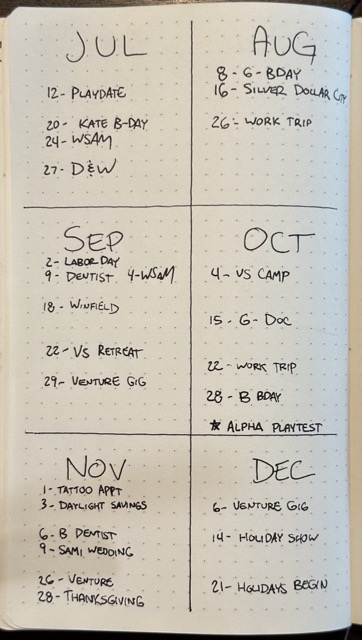 JUL
12 - PLAYDATE
20 - KATE B-DAY
24 - WSAM
27 - D&W
AUG
8 - G - BDAY
16 - SILVER DOLLAR CITY
26 - WORK TRIP
SEP
2 - LABOR DAY
9 - DENTIST 4-WSAM
18 - WINFIELD
22 - VS RETREAT
29 - VENTURE GIG
OCT
4 - VS CAMP
15 - G - DOC
22 - WORK TRIP
28 - B BDAY
★ ALPHA PLAYTEST
NOV
1 - TATTOO APPT
3 - DAYLIGHT SAVINGS
6 - B DENTIST
9 - SAMI WEDDING
26 - VENTURE
28 - THANKSGIVING
DEC
6 - VENTURE GIG
14 - HOLIDAY SHOW
21 - HOLIDAYS BEGIN